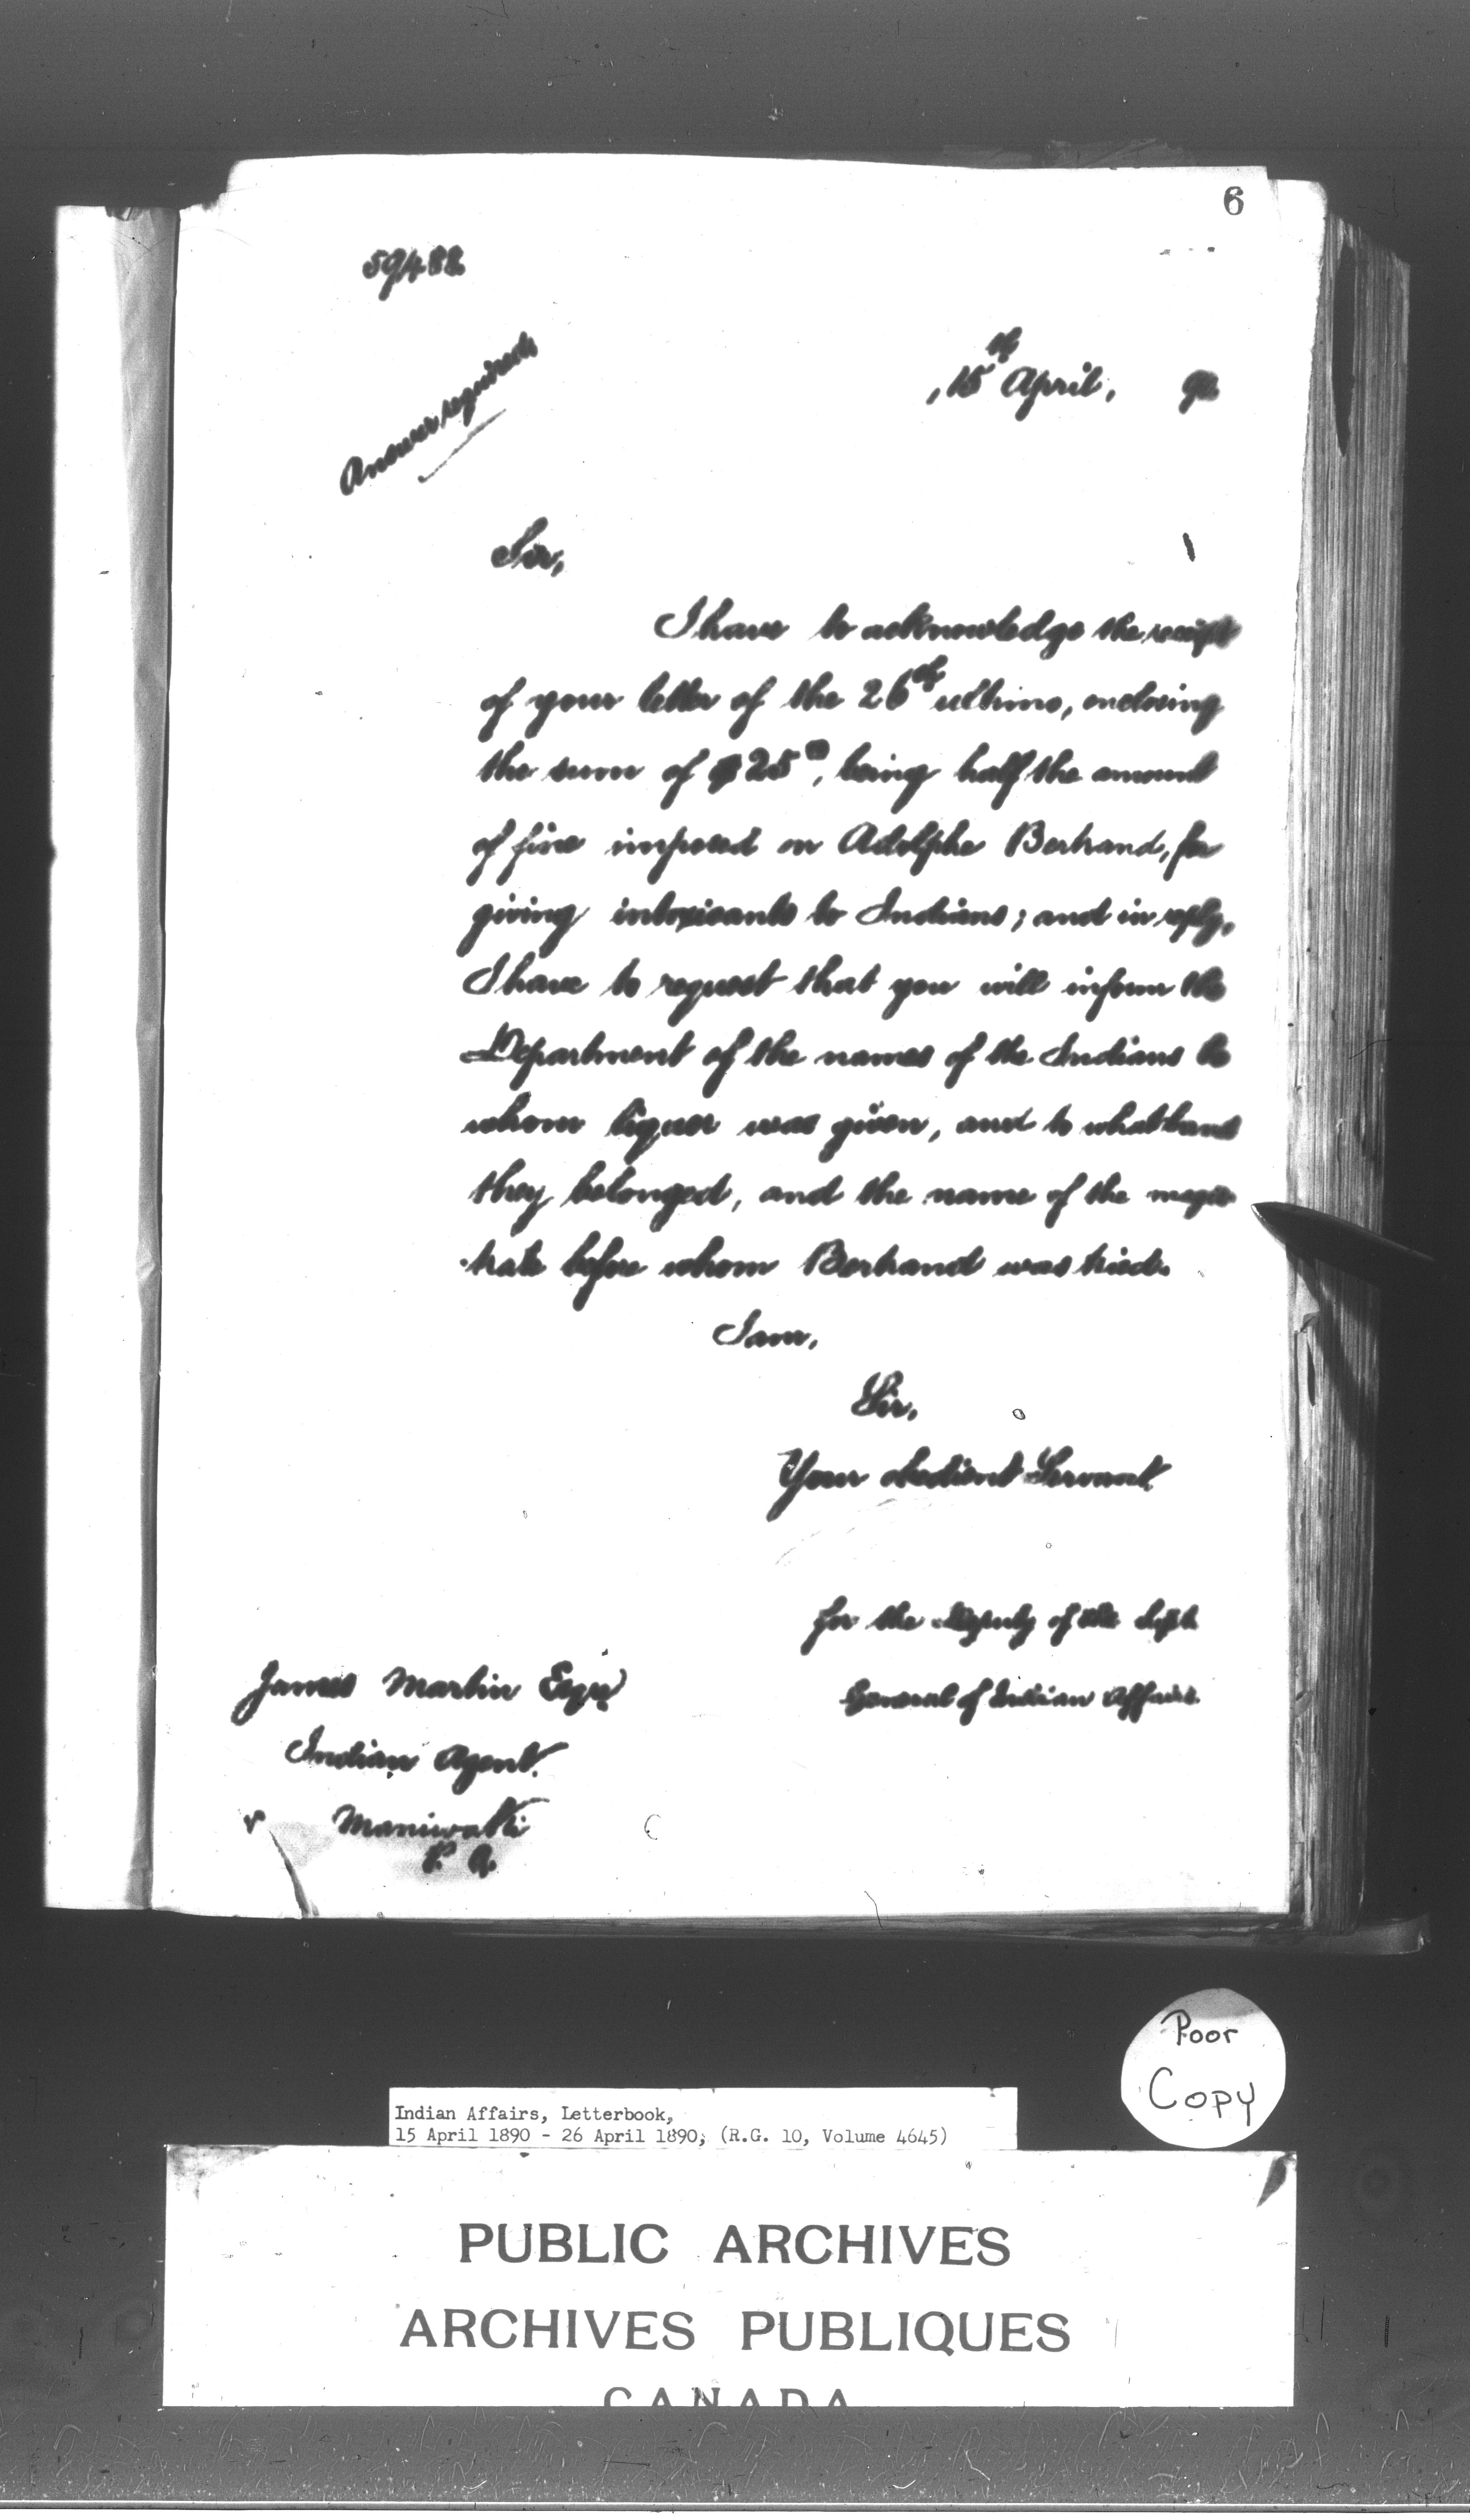 6
59488
Answer required
, 15th April, 90
Sir,
I have to acknowledge the receipt
of your letter of the 26th ultimo, enclosing
the sum of $25.00, being half the amount
of fine imposed on Adolphe Bertrand, for
giving intoxicants to Indians; and in reply,
I have to request that you will inform the
Department of the names of the Indians to
whom liquor was given, and to what band
they belonged, and the name of the magis
trate before whom Bertrand was tried.
I am,
Sir,
Your obedient Servant
for the Deputy of the Supt.
General of Indian Affairs.
James Martin Esqr
Indian Agent.
Maniwaki
P. Q.
Poor
Copy
Indian Affairs, Letterbook,
15 April 1890 - 26 April 1890, (R.G. 10, Volume 4645)
PUBLIC ARCHIVES
ARCHIVES PUBLIQUES
CANADA